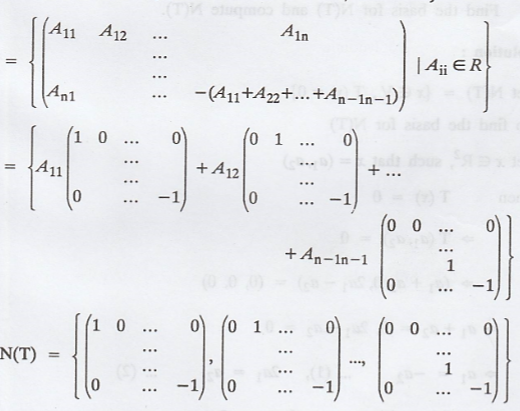 = { ( A11 A12 ... A1n
...
...
An1 ... −(A11+A22+...+An−1n−1) ) | Aii ∈ R }
= { A11 ( 1 0 ... 0
...
...
0 ... −1 ) + A12 ( 0 1 ... 0
...
...
0 ... −1 ) + ...
+ An−1n−1 ( 0 0 ... 0
...
1
0 ... −1 ) }
N(T) = { ( 1 0 ... 0
...
...
0 ... −1 ) , ( 0 1 ... 0
...
...
0 ... −1 ) ..., ( 0 0 ... 0
...
1
0 ... −1 ) }